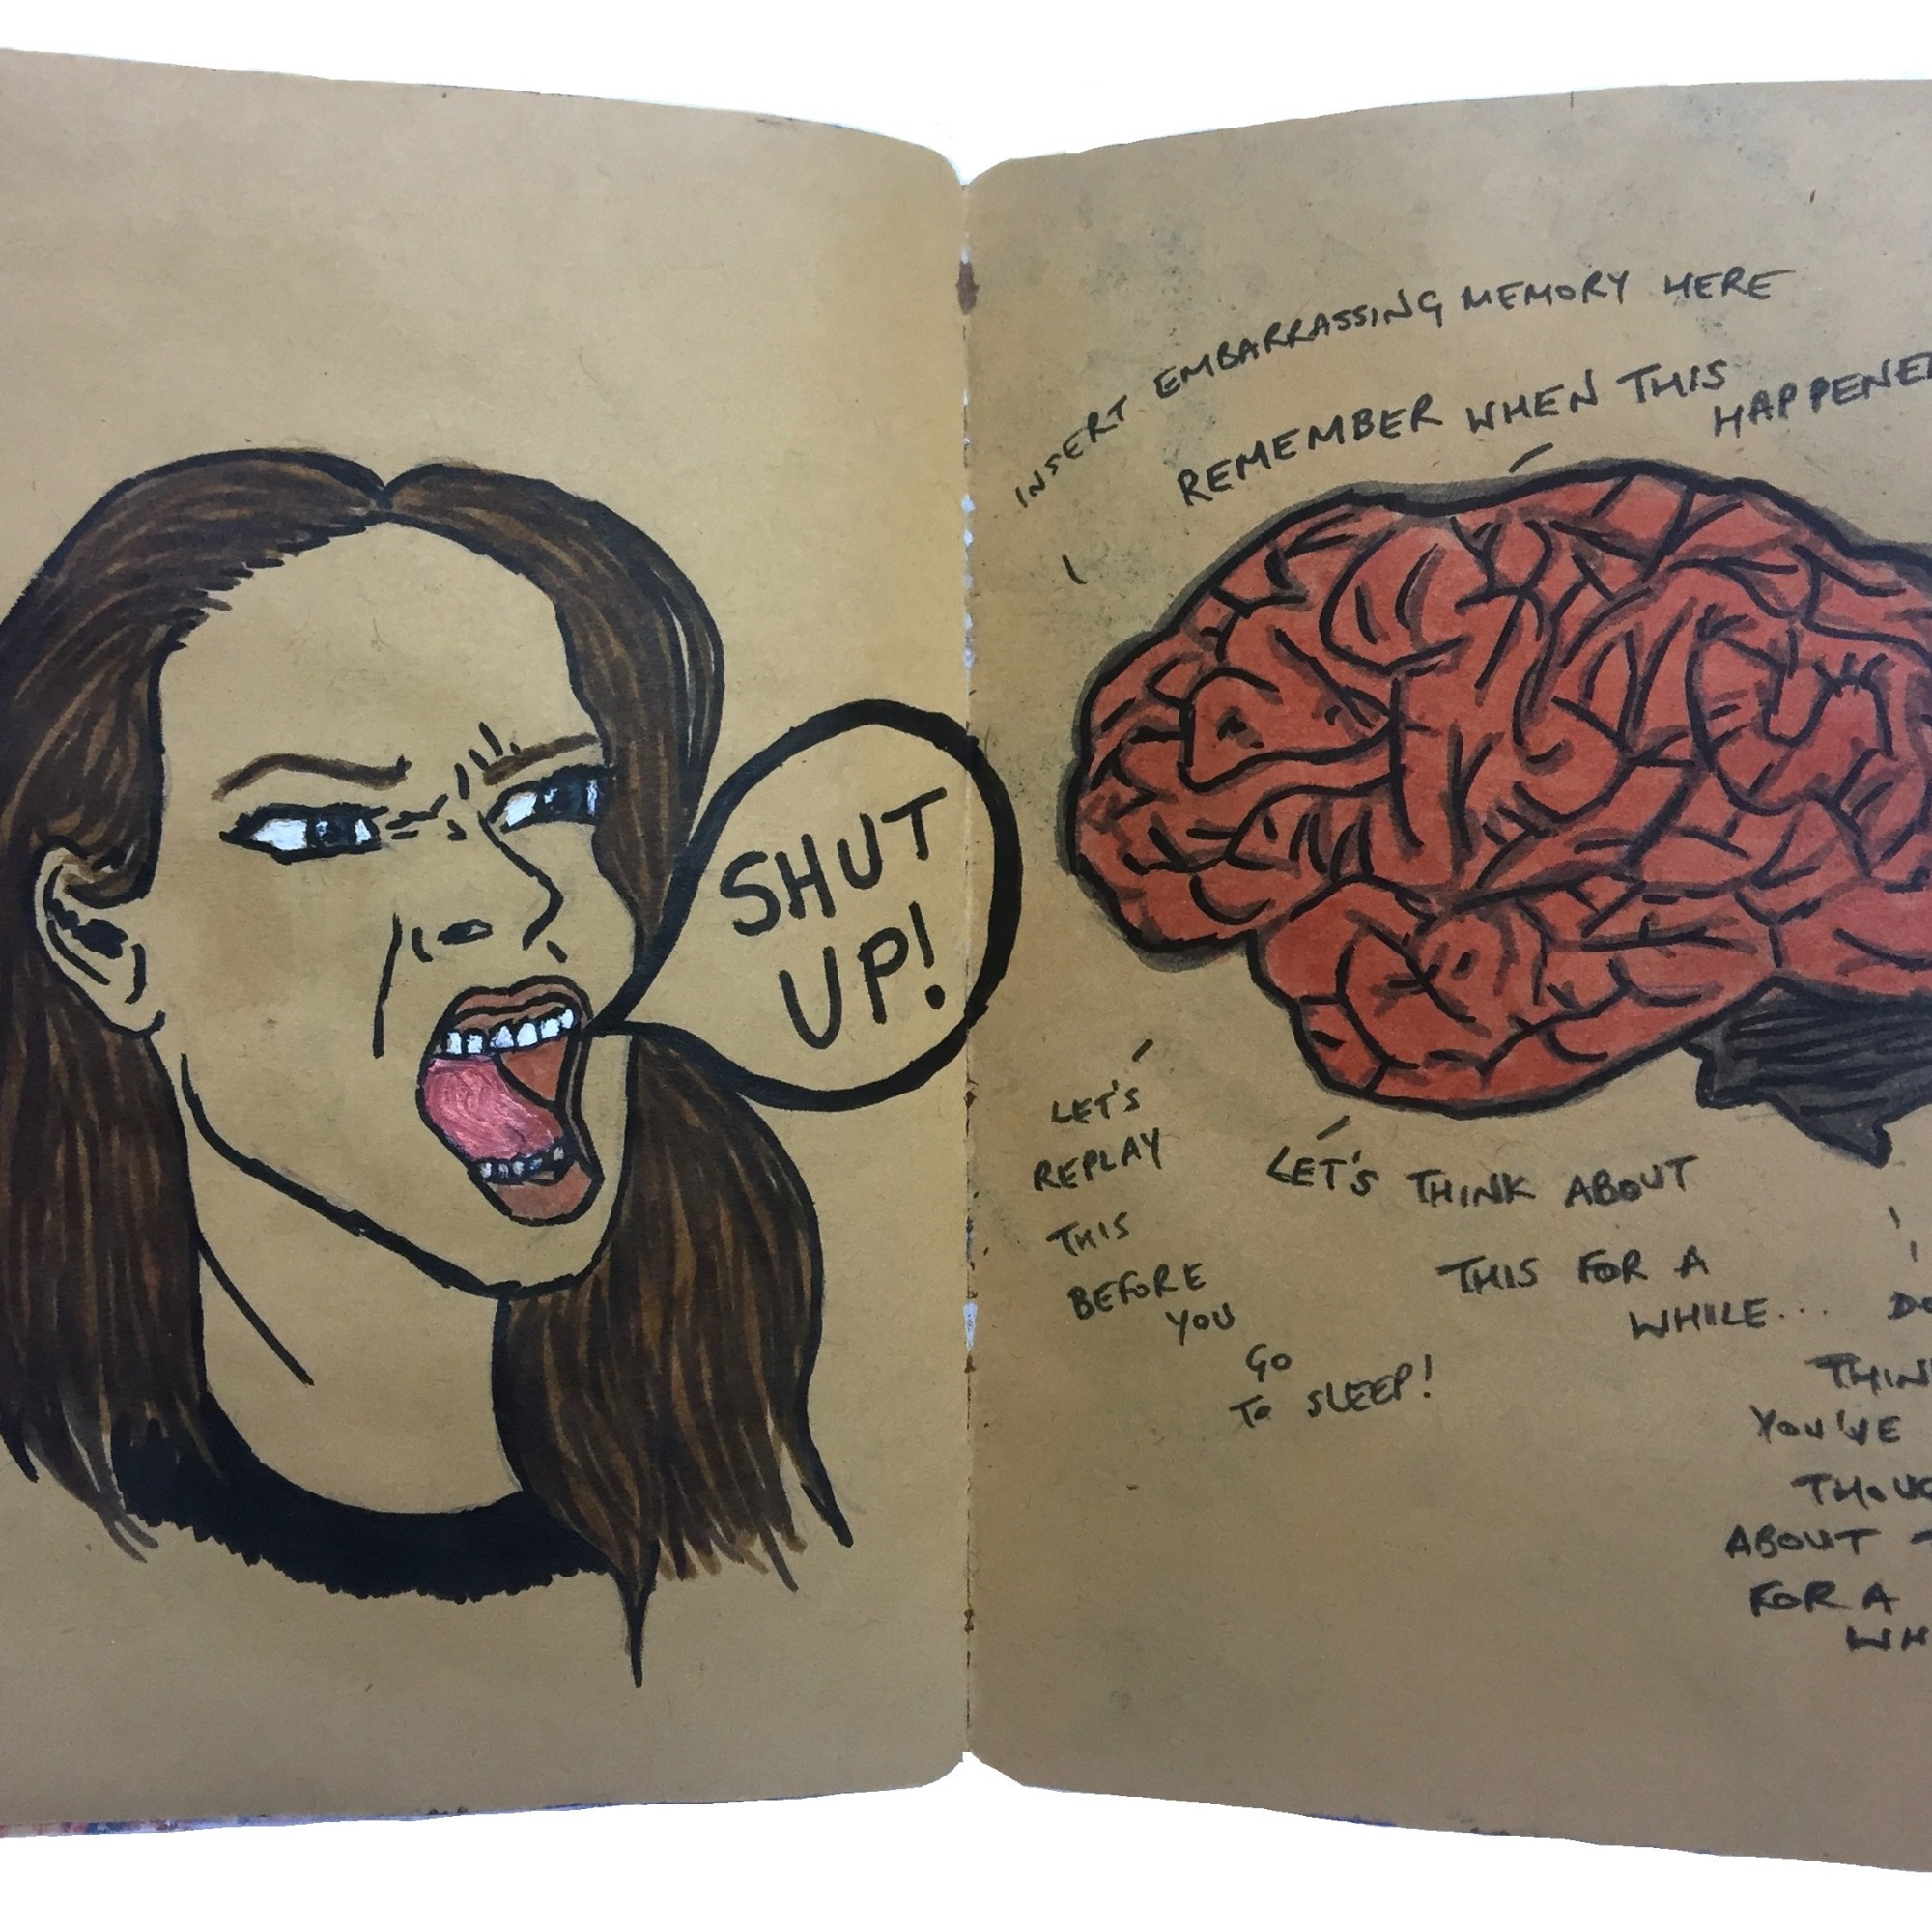 SHUT
UP!
INSERT EMBARRASSING MEMORY HERE
REMEMBER WHEN THIS
LET'S
REPLAY
THIS
BEFORE
YOU
GO
TO SLEEP!
LET'S THINK ABOUT
THIS FOR A
WHILE...
YOU'VE
ABOUT
FOR A